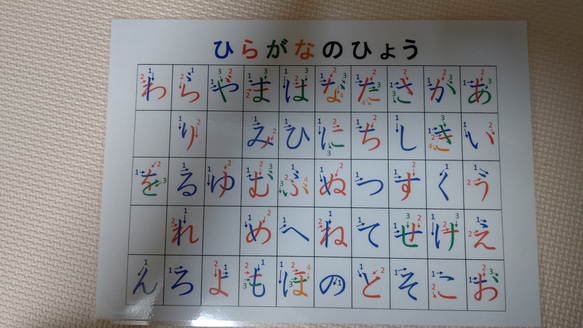 ひらがなのひょう
あ い う え お
か き く け こ
さ し す せ そ
た ち つ て と
な に ぬ ね の
は ひ ふ へ ほ
ま み む め も
や ゆ よ
ら り る れ ろ
わ を ん